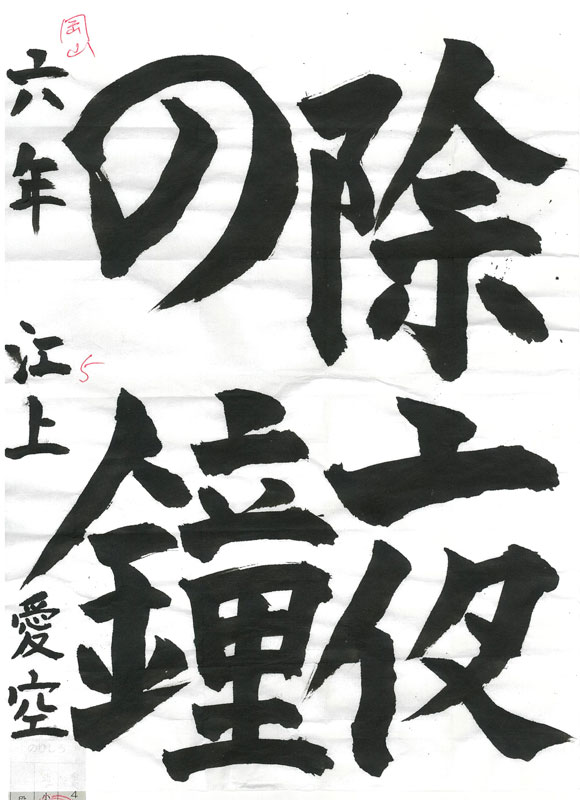 除夜
の鐘
六年 江上 愛空
岡山
5
小
4